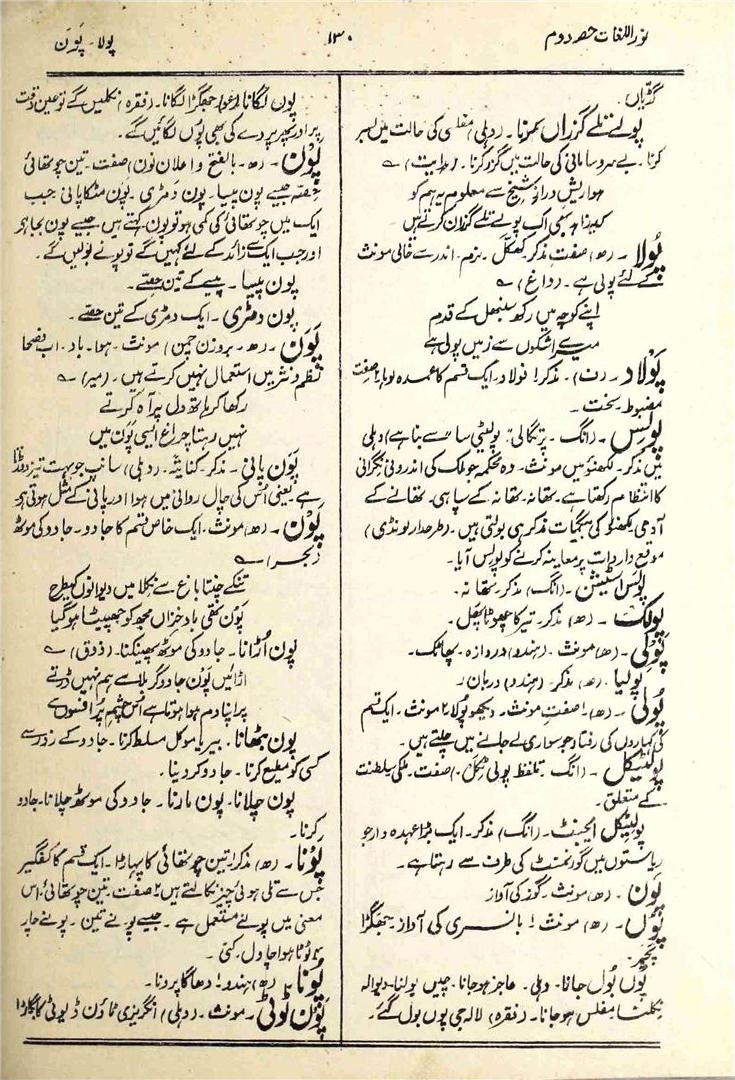 نور اللغات حصہ دوم
۱۳۰
پولا - پَوَن
گڑیاں.
پولے تلے گزراں کرنا - (دہلی) مفلسی کی حالت میں بسر
کرنا - بے سروسامانی کی حالت میں گزر کرنا -
ہوا ریش دراز شیخ سے معلوم یہ ہم کو
اک پولے تلے گزران کرتے ہیں
پُولا - (ھ) صفت مذکر - کھکل - نرم - اندر سے خالی مونث
کے لئے پولی ہے - (داغ) ؎
اپنے کوچہ میں رکھ سنبھل کے قدم
میرے اشکوں سے زمیں پولی ہے
پَوْلاد - (ف) - مذکر ۱ فولاد - ایک قسم کا عمدہ لوہا ۲ صفت
مضبوط - سخت -
پولِس - (انگ - پرتگالی "پولیٹی سا" سے بنا ہے) دہلی
میں مذکر - لکھنؤ میں مونث - وہ محکمہ جو ملک کی اندرونی نگرانی
کا انتظام رکھتا ہے - تھانہ - تھانہ کے سپاہی - تھانے کے
آدمی لکھنؤ کی بیگمات مذکر ہی بولتی ہیں - (طرحدار لونڈی)
موقع واردات پر معاینہ کرنے کو پولس آیا -
پولس اسٹیشن - (انگ) مذکر - تھانہ -
پولک - (ھ) مذکر - تیر کا چھوٹا پھل -
پَولی - (ھ) مونث - (ہندو) دروازہ - پھاٹک -
پولیا - (ھ) مذکر - (ہندو) دربان -
پُولی - (ھ) ۱ صفت مونث - دیکھو پولا ۲ مونث - ایک قسم
کی کہاروں کی رفتار جو سواری لے جانے میں چلتے ہیں -
پولٹیکل - (انگ - تلفظ پولی ٹِکَل) صفت - ملکی سلطنت
کے متعلق -
پولٹیکل ایجنٹ - (انگ) مذکر - ایک بڑا عہدہ دار جو
ریاستوں میں گورنمنٹ کی طرف سے رہتا ہے -
پون - (ھ) مونث - گوز کی آواز
پُوں - (ھ) مونث ۱ بانسری کی آواز - جھگڑا
پچر -
پُوں بول جانا - دہلی - عاجز ہو جانا - چیں بولنا - دیوالہ
نکلنا مفلس ہو جانا - (فقرہ) لالہ جی پوں بول گئے -
پوں لگانا (عو) جھگڑا لگانا - (فقرہ) نکلیں گے تو عین وقت
پر اور پھر پردے کی بھی پُوں لگائیں گے -
پَوْن - (ھ - بالفتح و اعلان نون) صفت - تین چوتھائی
حصّہ جیسے پون پیسا - پون دمڑی - پون مٹکا پانی جب
ایک میں چوتھائی کی کمی ہو تو پون کہتے ہیں جیسے پون بجا ہو
اور جب ایک سے زائد کے لئے کہیں گے تو پونے بولیں گے -
پون پیسا - پیسے کے تین حصّے -
پون دمڑی - ایک دمڑی کے تین حصّے -
پَوَن - (ھ - بروزن چمن) مونث - ہوا - باد - اب فصحا
نظم و نثر میں استعمال نہیں کرتے ہیں - (میر) ؎
رکھا کر ہاتھ دل پر آہ کرتے
نہیں رہتا چراغ ایسی پَوَن میں
پَوَن پانی - مذکر - کنایۃً - (دہلی) سانپ جو بہت تیز دوڑتا
رہے یعنی اُس کی چال روانی میں ہوا اور پانی کے مثل ہوتی ہو
پَوْن - (ھ) مونث - ایک خاص قسم کا جادو - جادو کی موٹھ
(بحر) ؎
تنکے چنتا باغ سے نکلا میں دیوانوں کی طرح
پَون تھی باد خزاں مجھ کو جھپیٹا ہو گیا
پون اُڑانا - جادو کی موٹھ پھینکنا - (ذوق) ؎
اڑائیں پَون جادو گر بلا سے ہم نہیں ڈرتے
پر اپنا دم ہوا ہوتا ہے اُس چشم پُر افسوں سے
پون بٹھانا - بیر یا موکل مسلط کرنا - جادو کے زور سے
کسی کو مطیع کرنا - جادو کر دینا -
پون چلانا - پون مارنا - جادو کی موٹھ چلانا - جادو
کرنا -
پَونا - (ھ) مذکر ۱ تین چوتھائی کا پہاڑا - ایک قسم کا کفگیر
جس سے تلی ہوئی چیز نکالتے ہیں ۲ صفت - تین چوتھائی، اس
معنی میں پونے مستعمل ہے - جیسے پونے تین - پونے چار
ٹوٹا ہوا چاول - کنی -
پُونا - (ھ) (ہندو) دھاگا پرونا -
پَون ٹوٹی - مونث - (دہلی) انگریزی ٹاؤن ڈیوٹی کا بگاڑا